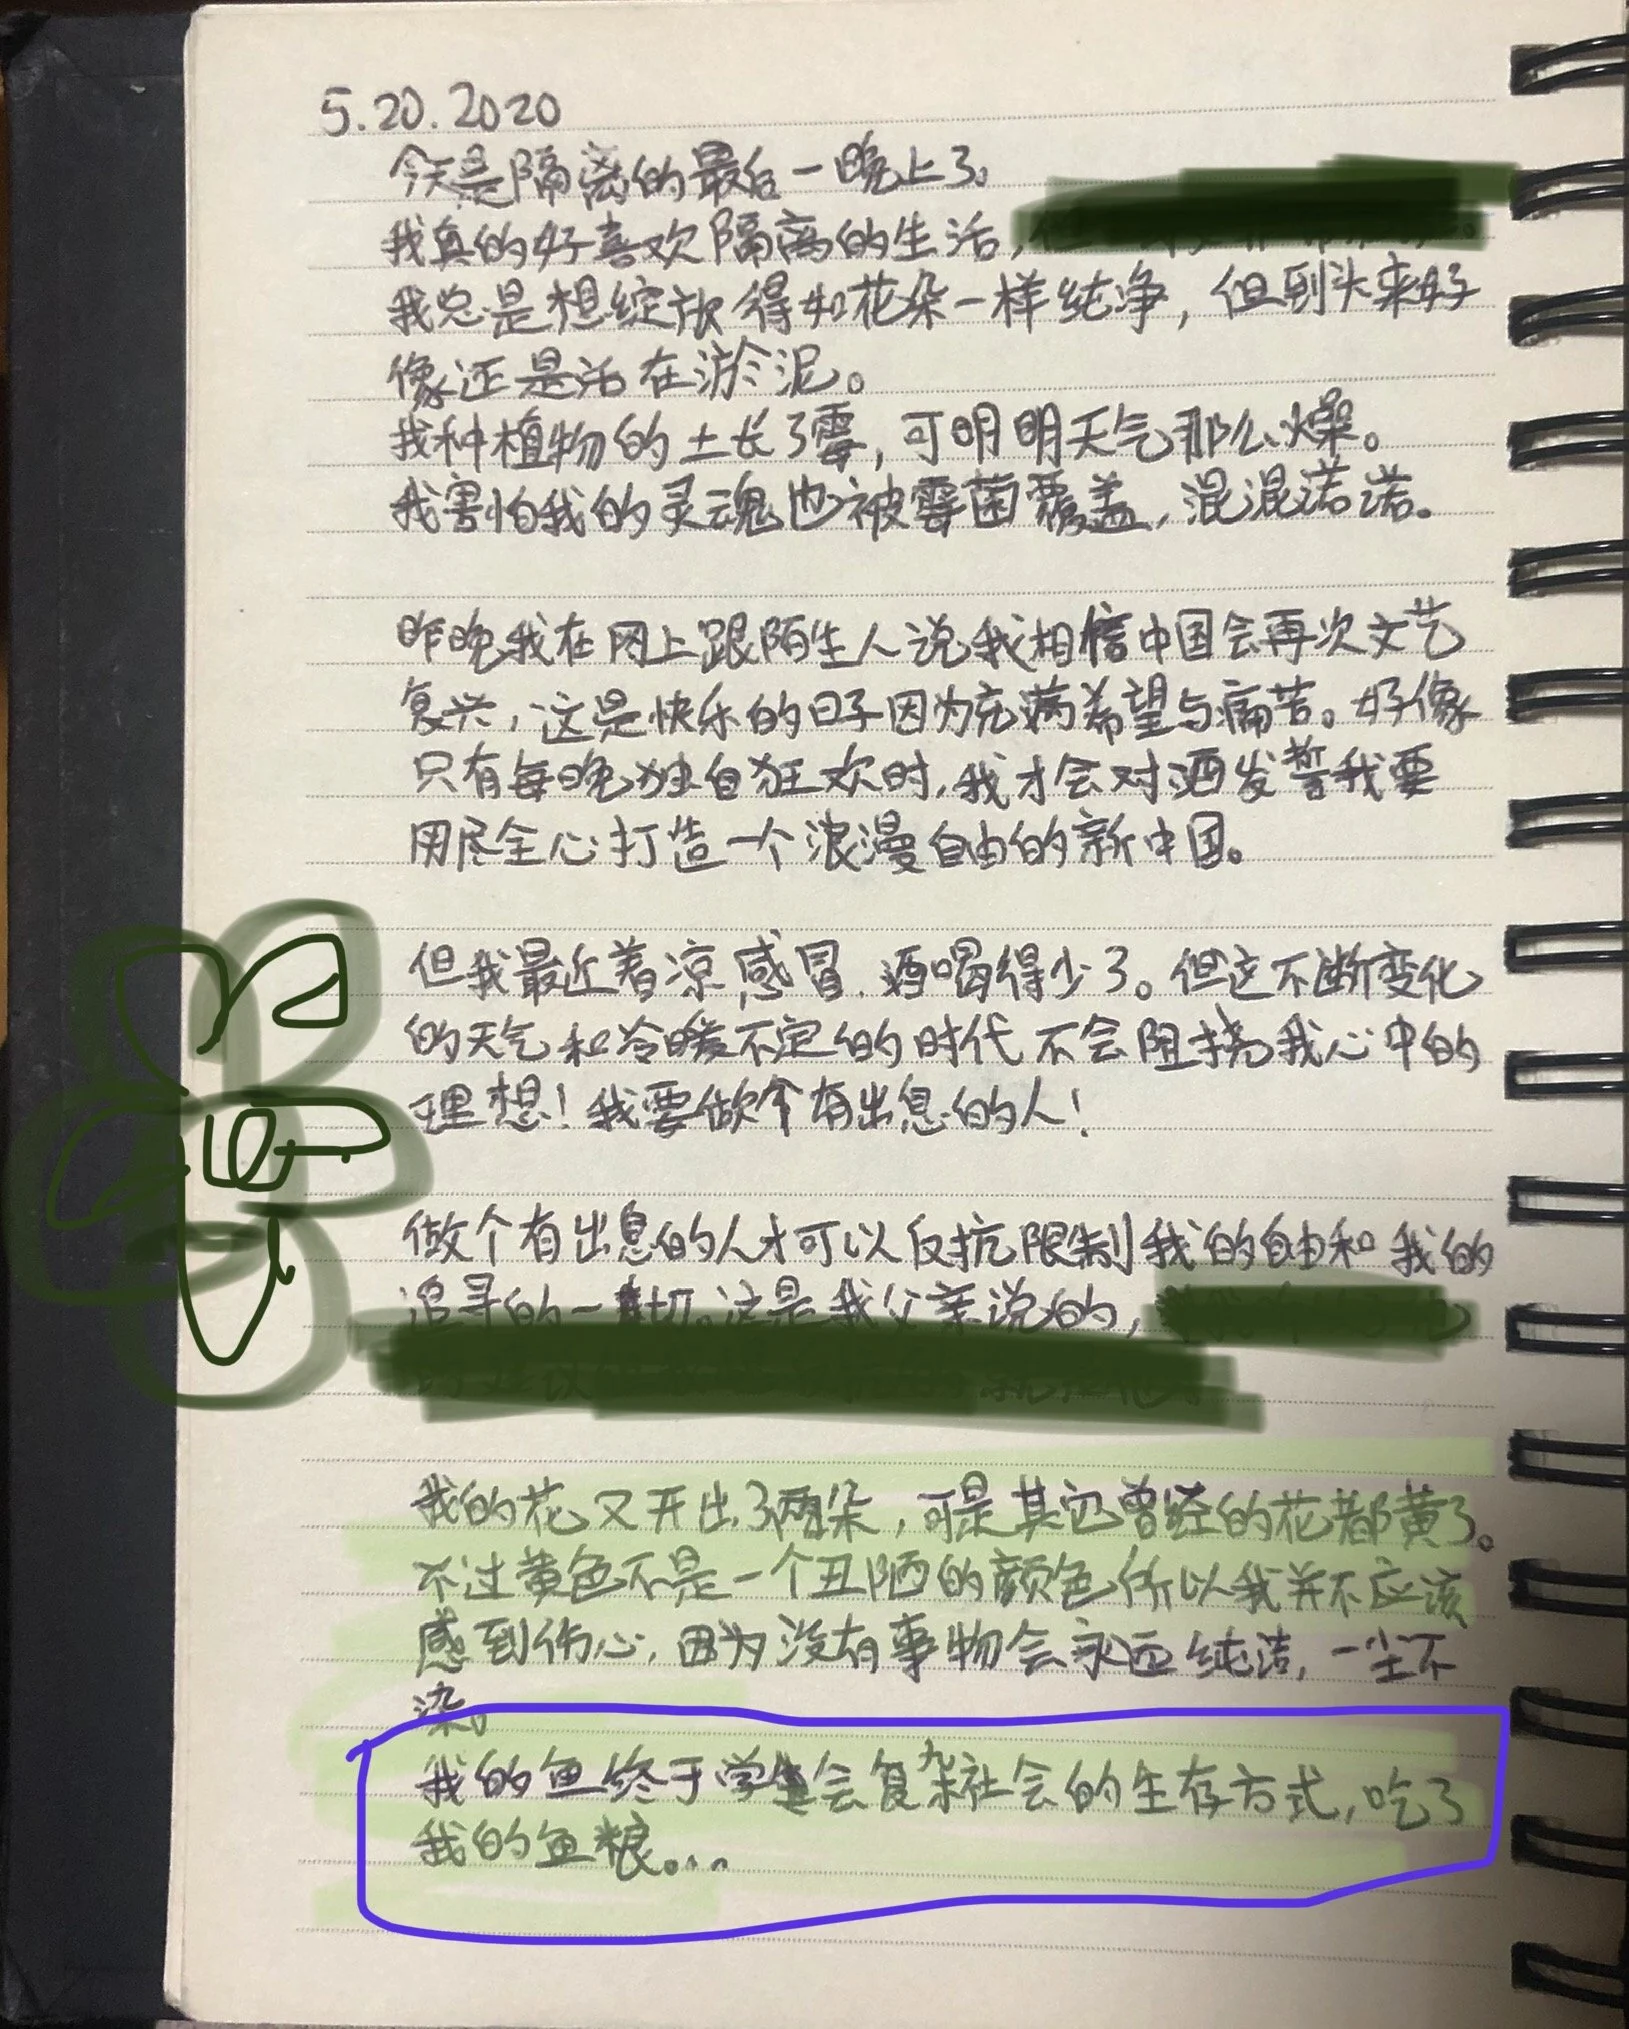 5.20.2020
今天是隔离的最后一晚上了。
我真的好喜欢隔离的生活，但
我总是想绽放得如花朵一样纯净，但到头来好
像还是活在淤泥。
我种植物的土长了霉，可明明天气那么燥。
我害怕我的灵魂也被霉菌覆盖，混混诺诺。
昨晚我在网上跟陌生人说我相信中国会再次文艺
复兴，这是快乐的日子因为充满希望与痛苦。好像
只有每晚独自狂欢时，我才会对酒发誓我要
用尽全心打造一个浪漫自由的新中国。
但我最近着凉感冒，酒喝得少了。但这不断变化
的天气和冷暖不定的时代不会阻挠我心中的
理想！我要做个有出息的人！
做个有出息的人才可以反抗限制我的自由和我的
追寻的一切。这是我父亲说的，
我的花又开出了两朵，可是其它曾经的花都黄了。
不过黄色不是一个丑陋的颜色所以我并不应该
感到伤心，因为没有事物会永远纯洁，一尘不
染。
我的鱼终于学会复杂社会的生存方式，吃了
我的鱼粮。...